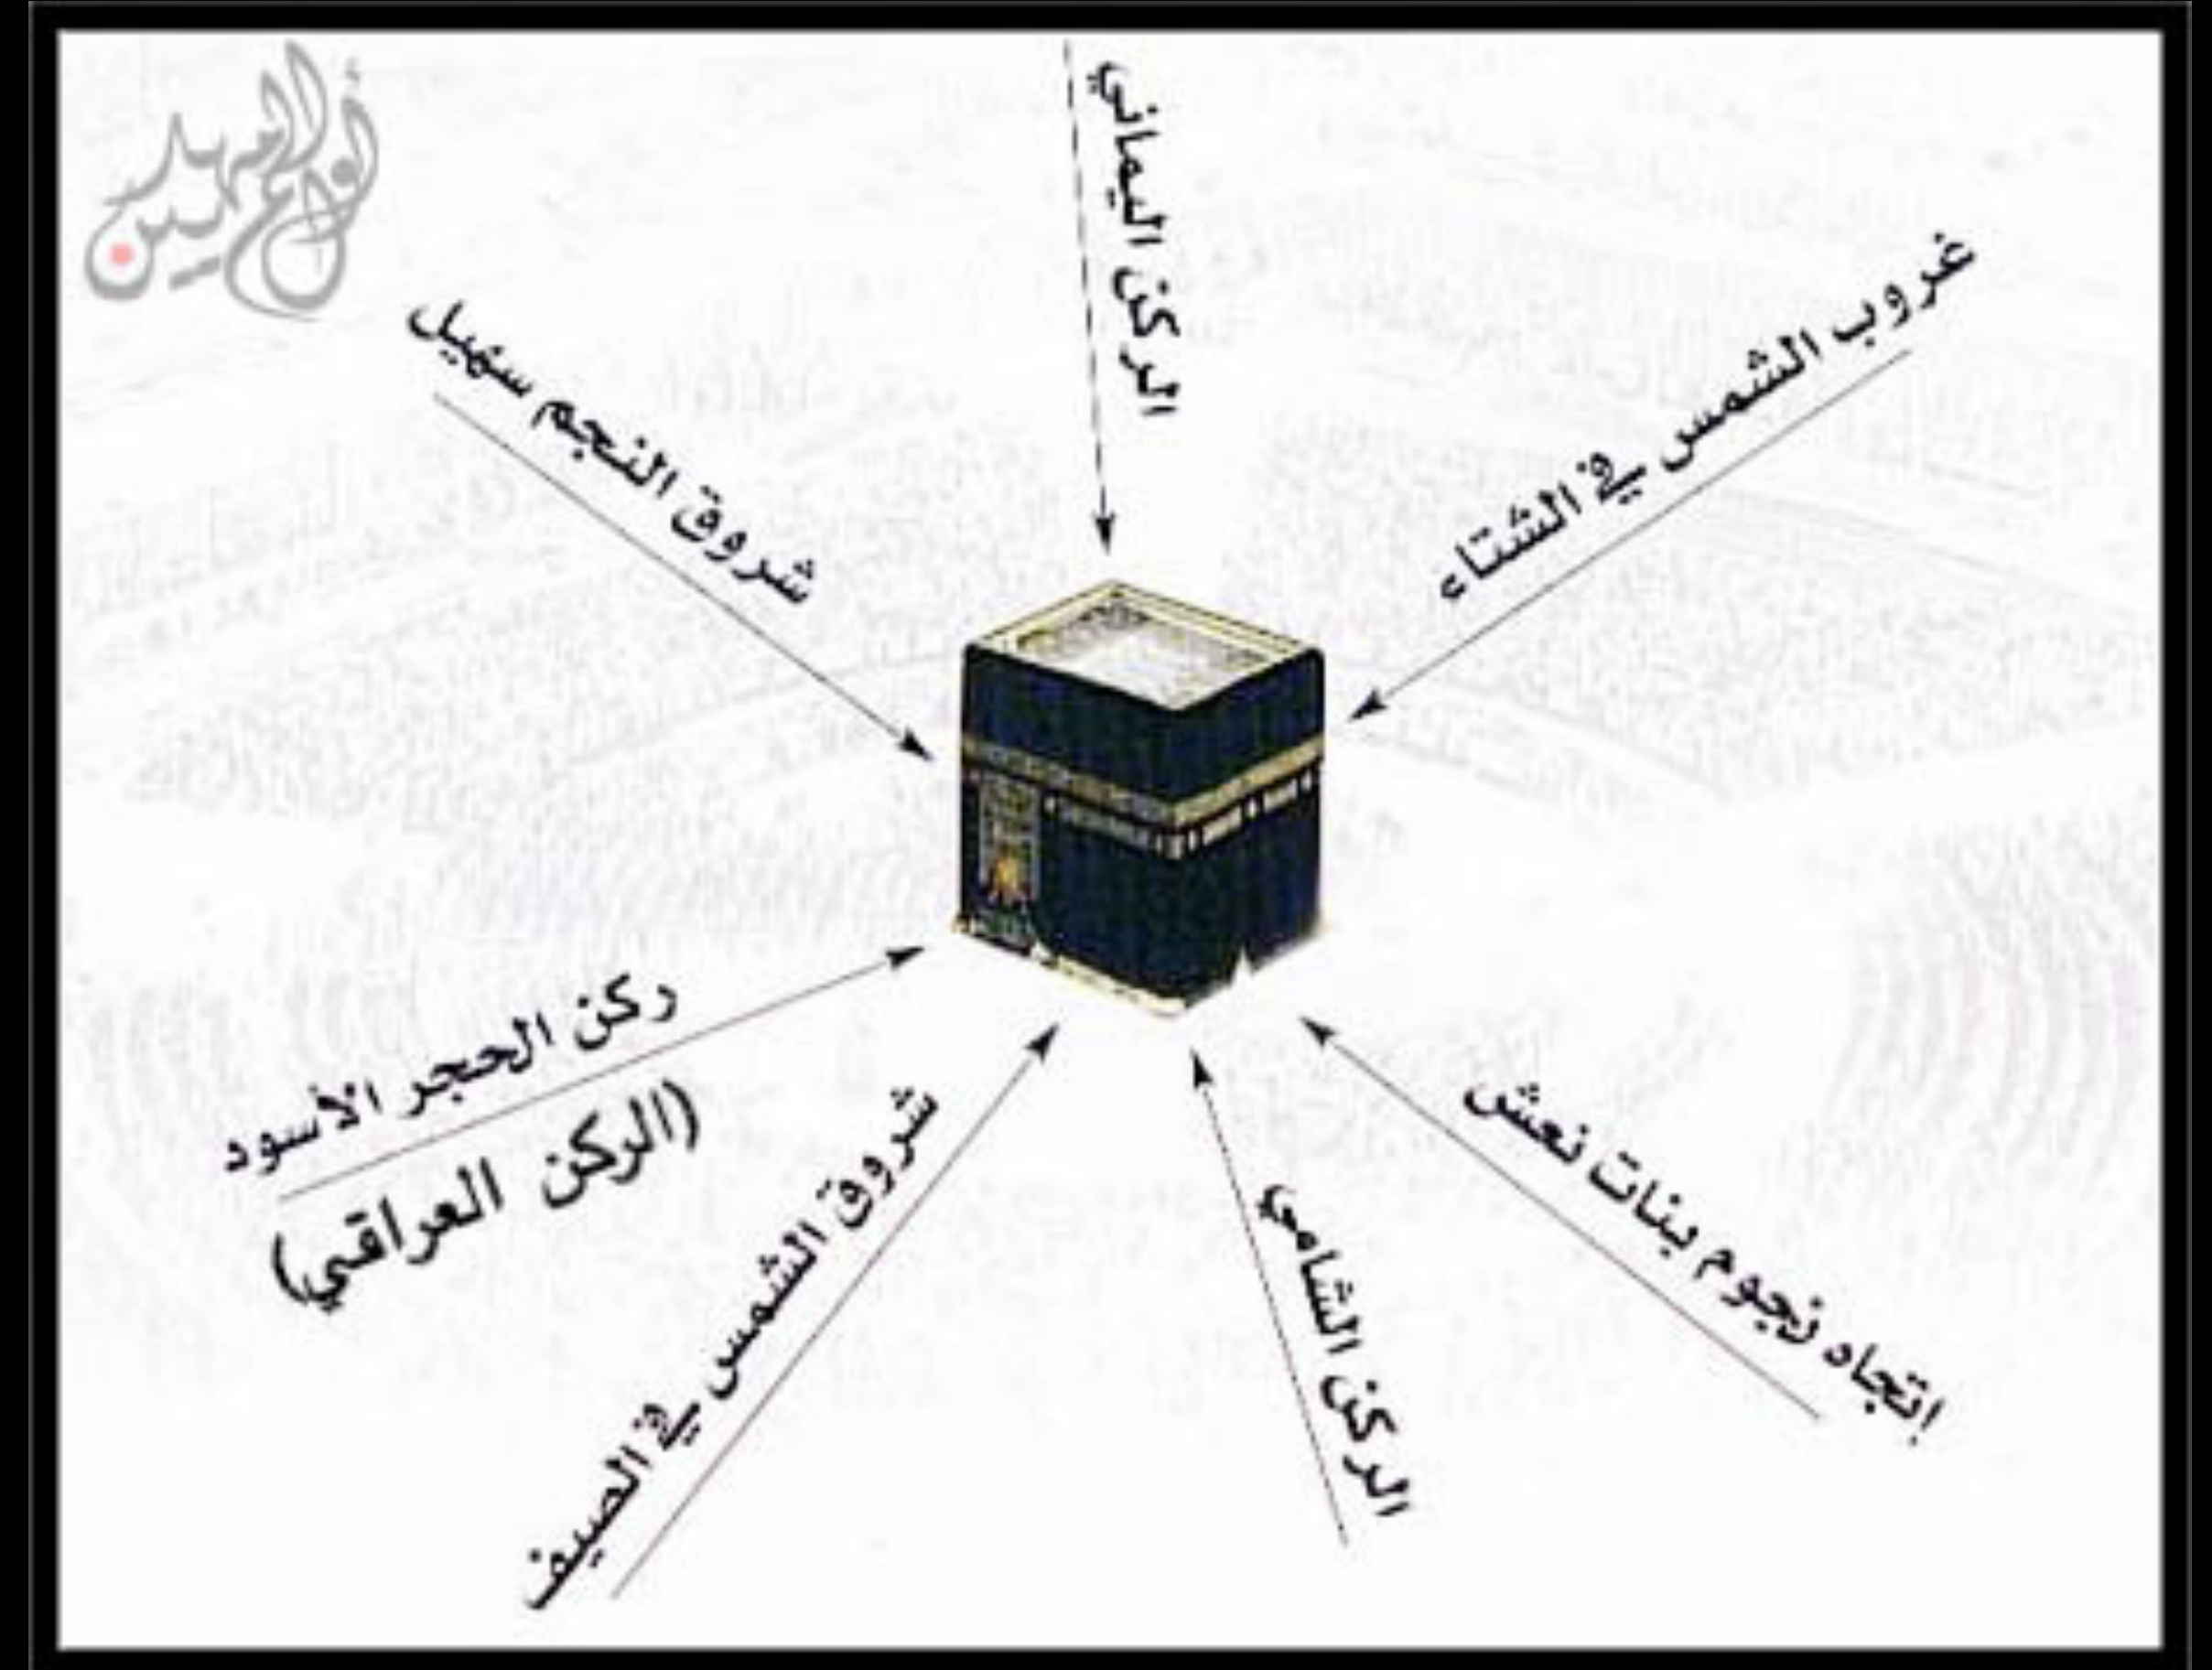 الركن اليماني
غروب الشمس في الشتاء
شروق النجم سهيل
ركن الحجر الأسود
(الركن العراقي)
شروق الشمس في الصيف
الركن الشامي
اتجاه نجوم بنات نعش